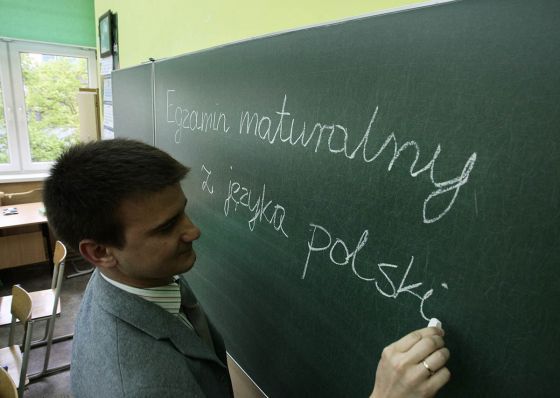 Egzamin maturalny
z języka polski